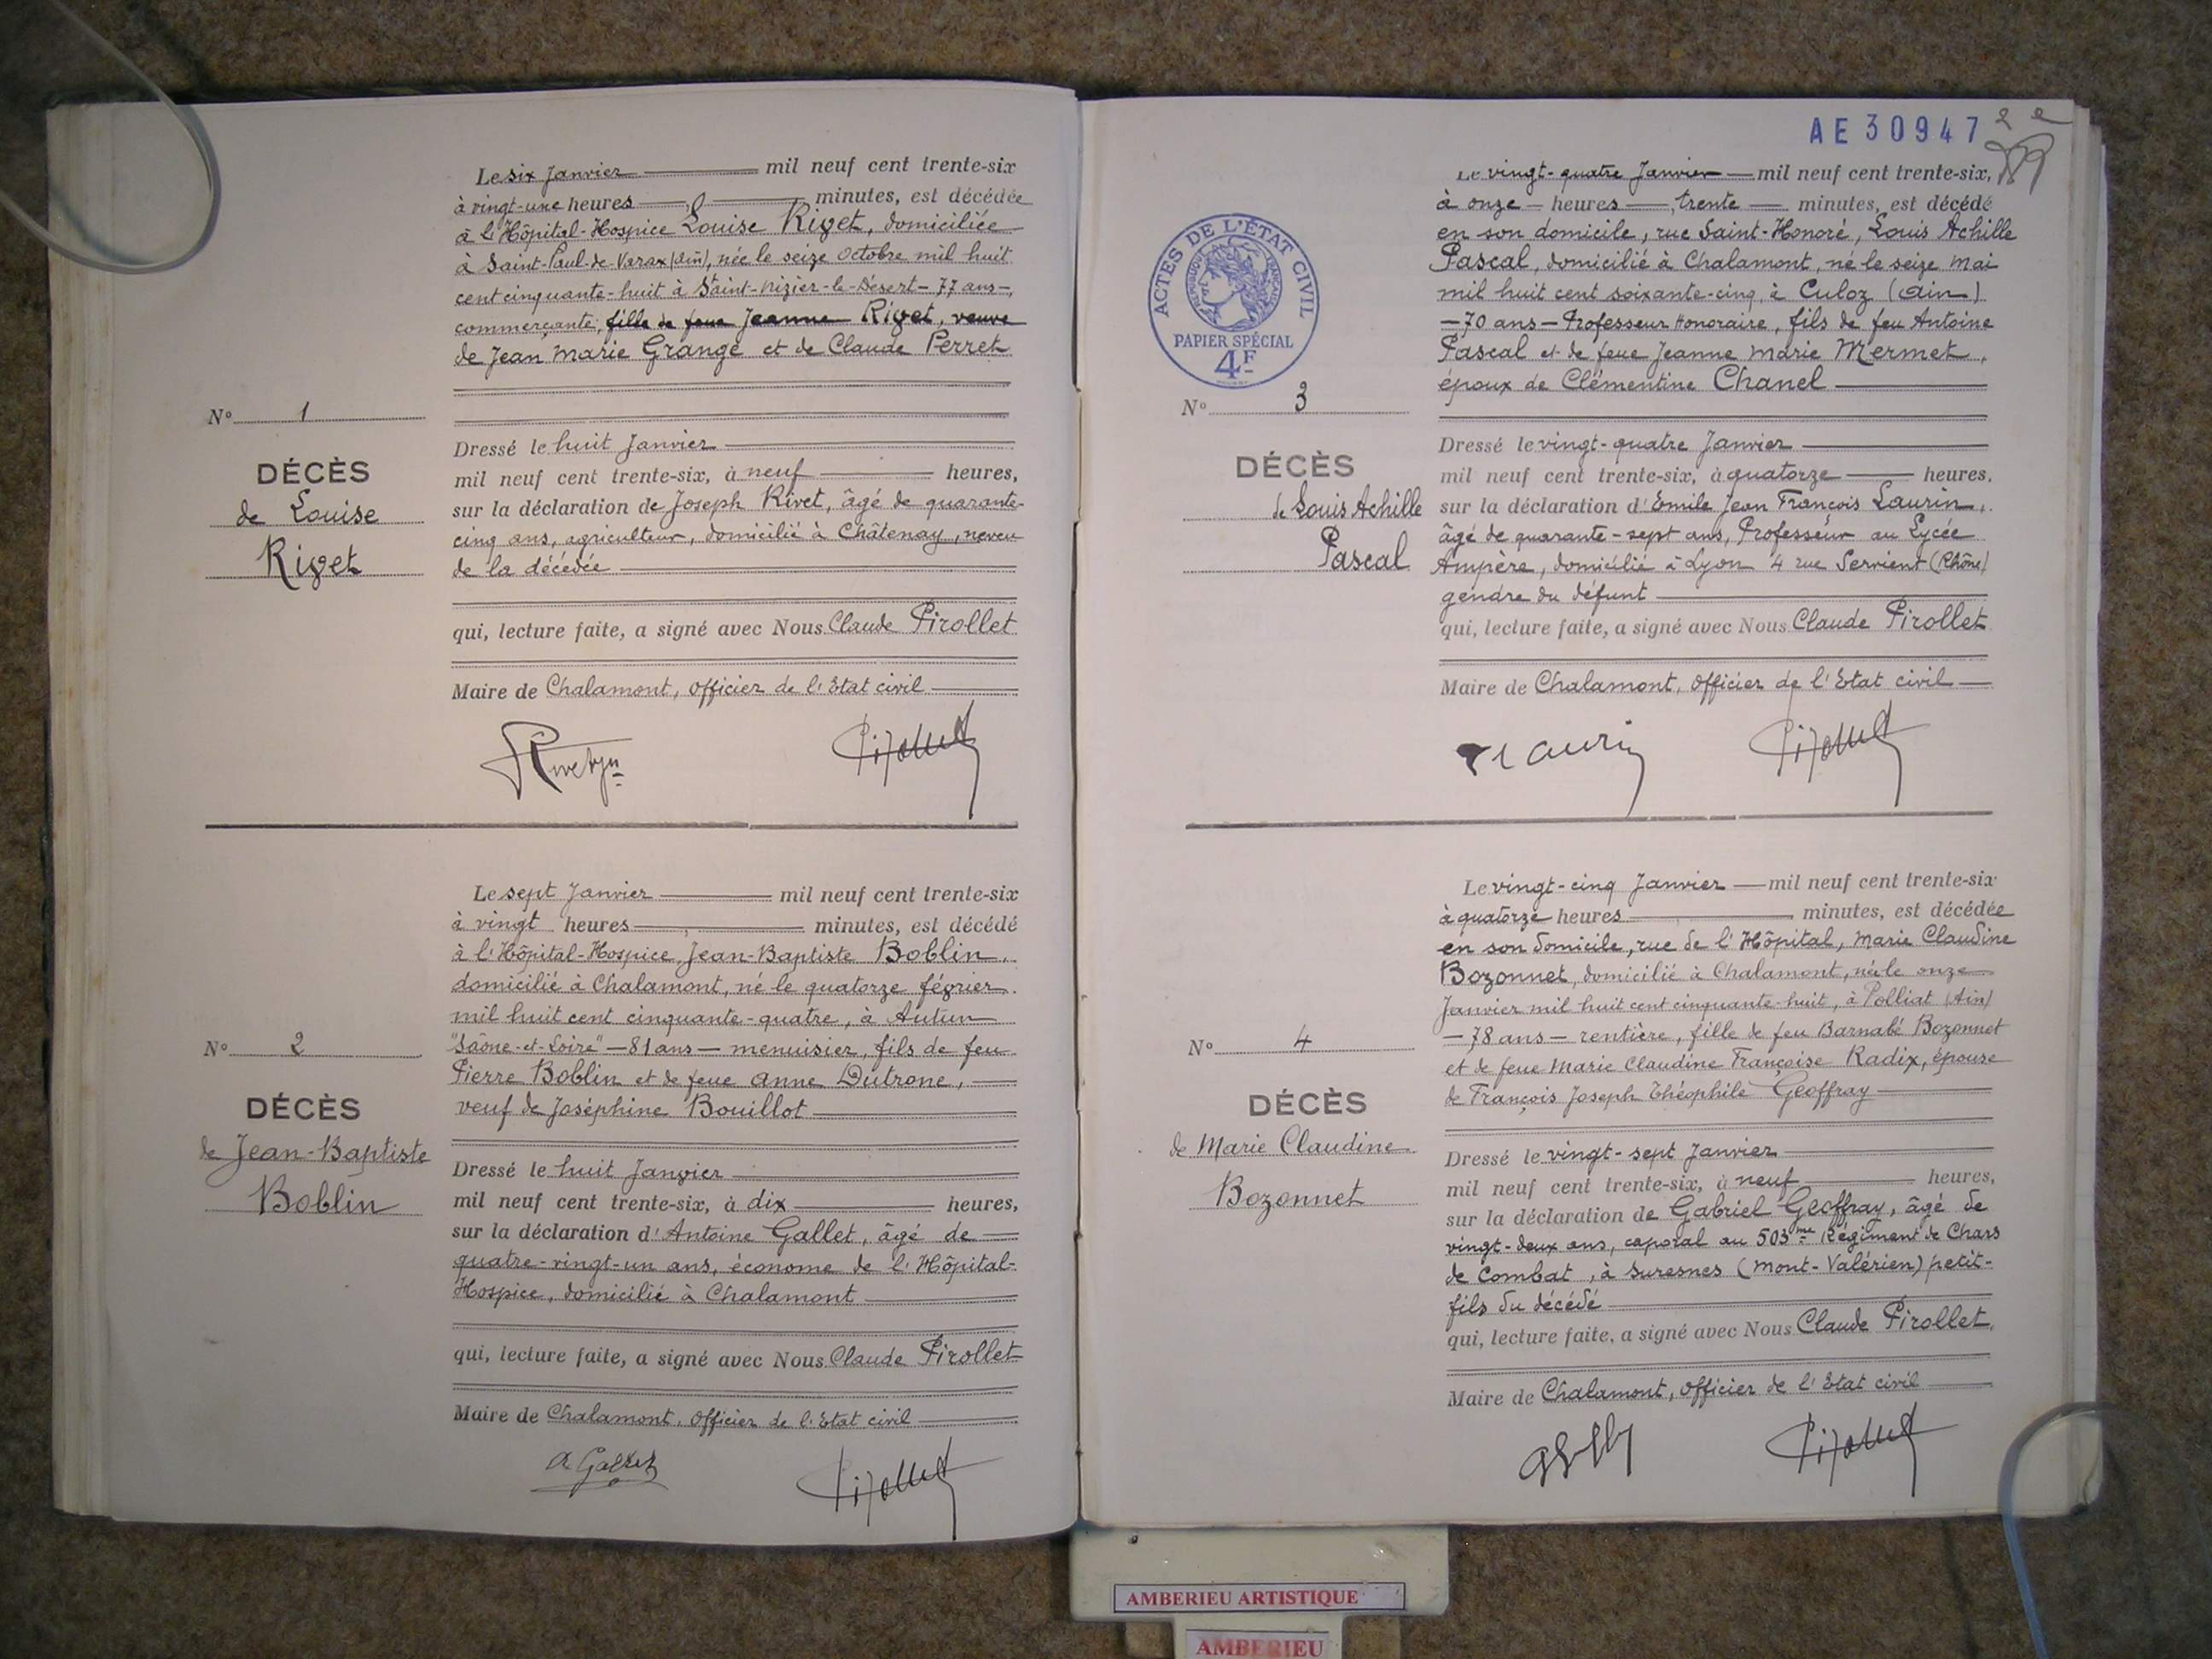 Le six Janvier mil neuf cent trente-six
à vingt-une heures 0 minutes, est décédée
à l'Hôpital-Hospice Louise Rivet, domiciliée
à Saint-Paul-de-Varax (Ain), née le seize Octobre mil huit
cent cinquante-huit à Saint-Nizier-le-Désert - 77 ans -,
commerçante, fille de feue Jeanne Rivet, veuve
de Jean Marie Grange et de Claude Perret
N° 1
DÉCÈS
de Louise
Rivet
Dressé le huit Janvier
mil neuf cent trente-six, à neuf heures,
sur la déclaration de Joseph Rivet, âgé de quarante-
cinq ans, agriculteur, domicilié à Châtenay, neveu
de la décédée
qui, lecture faite, a signé avec Nous Claude Pirollet
Maire de Chalamont, Officier de l'Etat civil
Le sept Janvier mil neuf cent trente-six
à vingt heures , minutes, est décédé
à l'Hôpital-Hospice, Jean-Baptiste Boblin,
domicilié à Chalamont, né le quatorze février
mil huit cent cinquante-quatre, à Autun
"Saône-et-Loire" - 81 ans - menuisier, fils de feu
Pierre Boblin et de feue Anne Dutrone,
veuf de Joséphine Bouillot
N° 2
DÉCÈS
de Jean-Baptiste
Boblin
Dressé le huit Janvier
mil neuf cent trente-six, à dix heures,
sur la déclaration d'Antoine Gallet, âgé de
quatre-vingt-un ans, économe de l'Hôpital-
Hospice, domicilié à Chalamont
qui, lecture faite, a signé avec Nous Claude Pirollet
Maire de Chalamont, Officier de l'Etat civil
A. Gallet
AE 30947
ACTES DE L'ÉTAT CIVIL
RÉPUBLIQUE FRANÇAISE
PAPIER SPÉCIAL
4F
Le vingt-quatre Janvier mil neuf cent trente-six,
à onze heures , trente minutes, est décédé
en son domicile, rue Saint-Honoré, Louis Achille
Pascal, domicilié à Chalamont, né le seize Mai
mil huit cent soixante-cinq à Culoz (Ain)
- 70 ans - Professeur Honoraire, fils de feu Antoine
Pascal et de feue Jeanne Marie Mermet,
époux de Clémentine Chanel
N° 3
DÉCÈS
de Louis Achille
Pascal
Dressé le vingt-quatre Janvier
mil neuf cent trente-six, à quatorze heures,
sur la déclaration d'Emile Jean François Laurin,
âgé de quarante-sept ans, Professeur au Lycée
Ampère, domicilié à Lyon 4 rue Servient (Rhône)
gendre du défunt
qui, lecture faite, a signé avec Nous Claude Pirollet
Maire de Chalamont, Officier de l'Etat civil
Laurin
Le vingt-cinq Janvier mil neuf cent trente-six
à quatorze heures minutes, est décédée
en son domicile, rue de l'Hôpital, Marie Claudine
Bozonnet, domicilié à Chalamont, née le onze
Janvier mil huit cent cinquante-huit, à Polliat (Ain)
- 78 ans - rentière, fille de feu Barnabé Bozonnet
et de feue Marie Claudine Françoise Radix, épouse
de François Joseph Théophile Geoffray
N° 4
DÉCÈS
de Marie Claudine
Bozonnet
Dressé le vingt-sept Janvier
mil neuf cent trente-six, à neuf heures,
sur la déclaration de Gabriel Geoffray, âgé de
vingt-deux ans, caporal au 503me Régiment de Chars
de Combat, à Suresnes (Mont-Valérien) petit-
fils du décédé
qui, lecture faite, a signé avec Nous Claude Pirollet,
Maire de Chalamont, Officier de l'Etat civil
AMBERIEU ARTISTIQUE
AMBERIEU